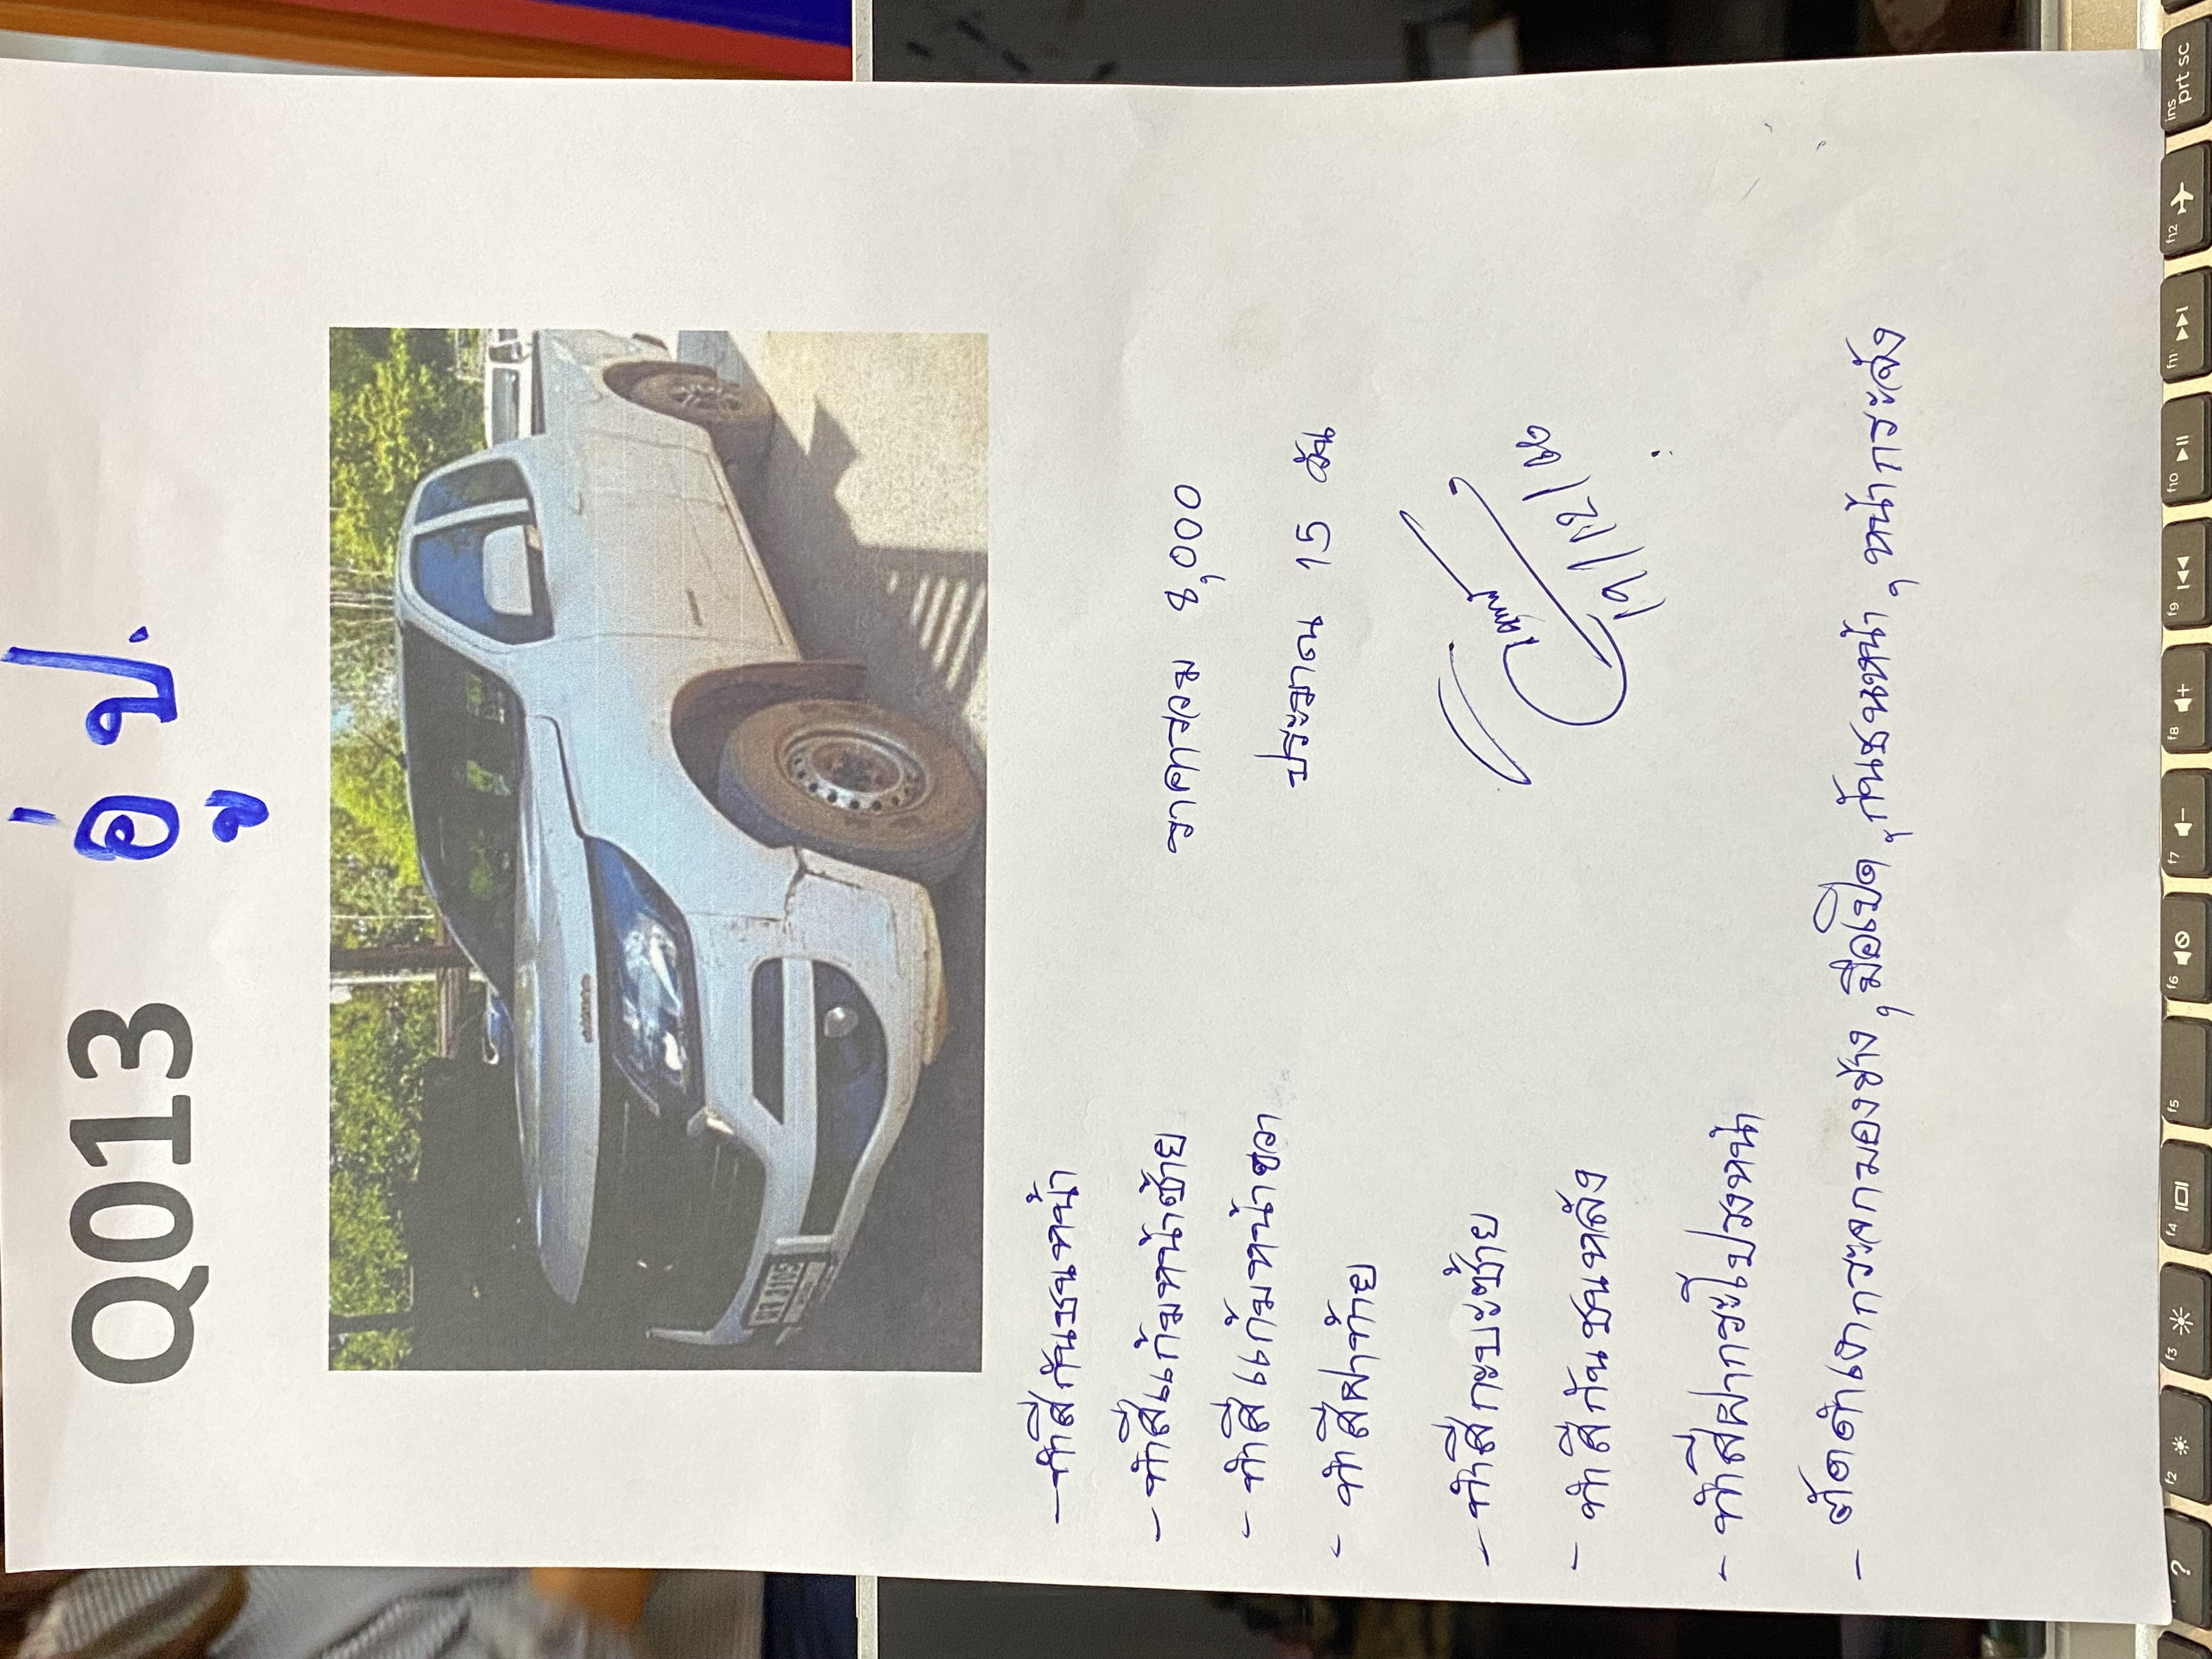 Q013 อู่ ป.
- ทำสีกันชนหน้า
ราคารวม 8,000
- ทำสีแก้มหน้าซ้าย
- ทำสีแก้มหน้าขวา
ประมาณ 15 วัน
- ทำสีฝาท้าย
- ทำสีกะบะซ้าย
19/12/
- ทำสีกันชนหลัง
- ทำสีฝากระโปรงหน้า
- ตัดดำเงากระจกมองข้าง, มือเปิด, กันชนหน้า, หน้ากระจัง
ins
prt sc
f12
f11
f10
f9
f8
f7
f6
f5
f4
f3
f2
?